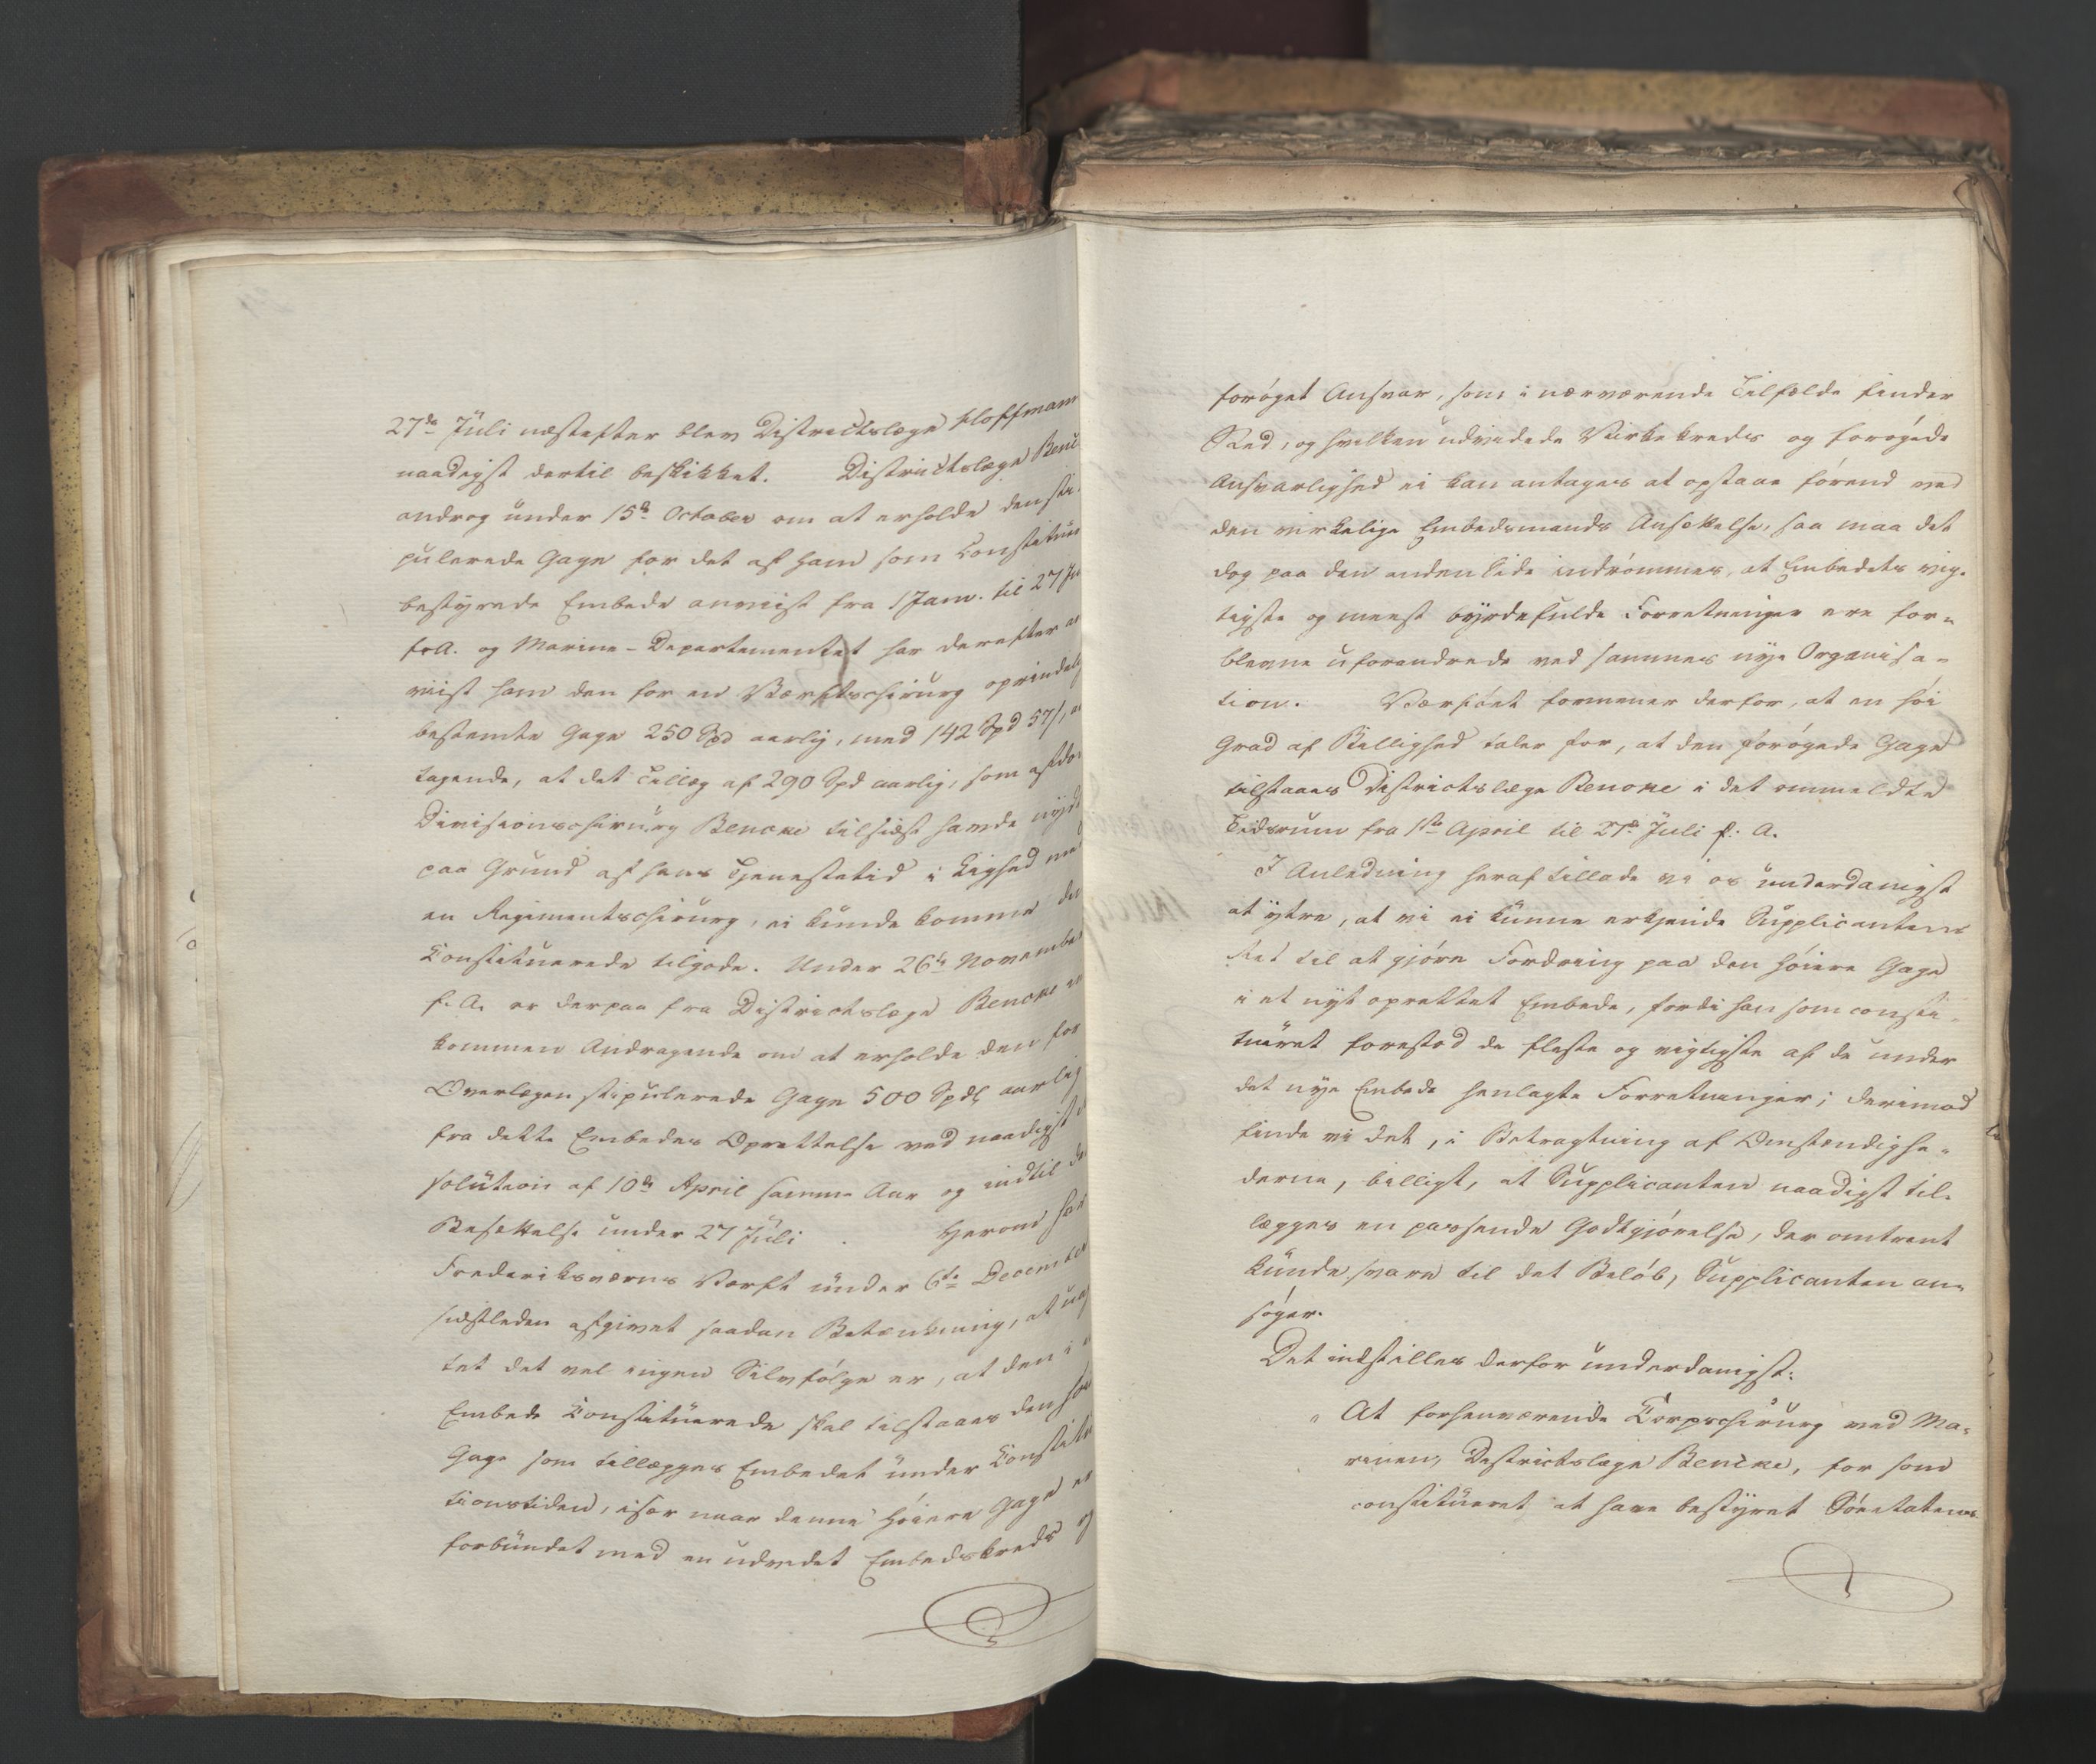 27de Juli næstefter blev Districtslæge Hoffmann
naadigst dertil beskikket. Districtslæge Benc
androg under 15de October om at erholde den sti-
pulerede Gage for det af ham som Constitue
bestyrede Embede anviist fra 1 Janv. til 27 Ju
f. A. og Marine-Departementet har derefter an
viist ham den for en Værftschirurg oprindelig
bestemte Gage 250 Spd aarlig, med 142 Spd 57 s, an
tagende, at det Tillæg af 290 Spd aarlig, som afdø
Divisionschirurg Bencke tilsidst havde nydt
paa Grund af hans Tjenestetid i Lighed med
en Regimentschirurg, ei kunde komme den
Constituerede tilgode. Under 26de November
f. A. er derpaa fra Districtslæge Bencke ind
kommen Andragende om at erholde den for
Overlægen stipulerede Gage 500 Spd aarlig
fra dette Embedes Oprettelse ved naadigst
solution af 10de April samme Aar og indtil dets
Besættelse under 27 Juli. Herom har
Frederiksværns Værft under 6te December
sidstleden afgivet saadan Betænkning, at uag
tet det vel ingen Selvfølge er, at den i et
Embede Constituerede skal tilstaaes den høiere
Gage som tillægges Embedet under Constitu
tionstiden, især naar denne høiere Gage er
forbundet med en udvidet Embedskreds og
forøget Ansvar, som i nærværende Tilfælde finder
Sted, og hvilken udvidede Virkekreds og forøgede
Ansvarlighed ei kan antages at opstaae førend ved
den virkelige Embedsmands Ansættelse, saa maa det
dog paa den anden Side indrømmes, at Embedets vig-
tigste og meest byrdefulde Forretninger ere for-
blevne uforandrede ved sammes nye Organisa-
tion. Værftet formener derfor, at en høi
Grad af Billighed taler for, at den forøgede Gage
tilstaaes Districtslæge Bencke i det ommeldte
Tidsrum fra 1ste April til 27de Juli f. A.
I Anledning heraf tillade vi os underdanigst
at yttre, at vi ei kunne erkjende Supplicantens
Ret til at gjøre Fordring paa den høiere Gage
i et nyt oprettet Embede, fordi han som consti-
tueret forestod de fleste og vigtigste af de under
det nye Embede henlagte Forretninger; derimod
finde vi det, i Betragtning af Omstændighe-
derne, billigt, at Supplicanten naadigst til-
lægges en passende Godtgjørelse, der omtrent
kunde svare til det Beløb, Supplicanten an-
søger.
Det indstilles derfor underdanigst:
"At forhenværende Corpschirurg ved Ma-
rinen, Districtslæge Bencke, for som
constitueret at have bestyret Søeetatens